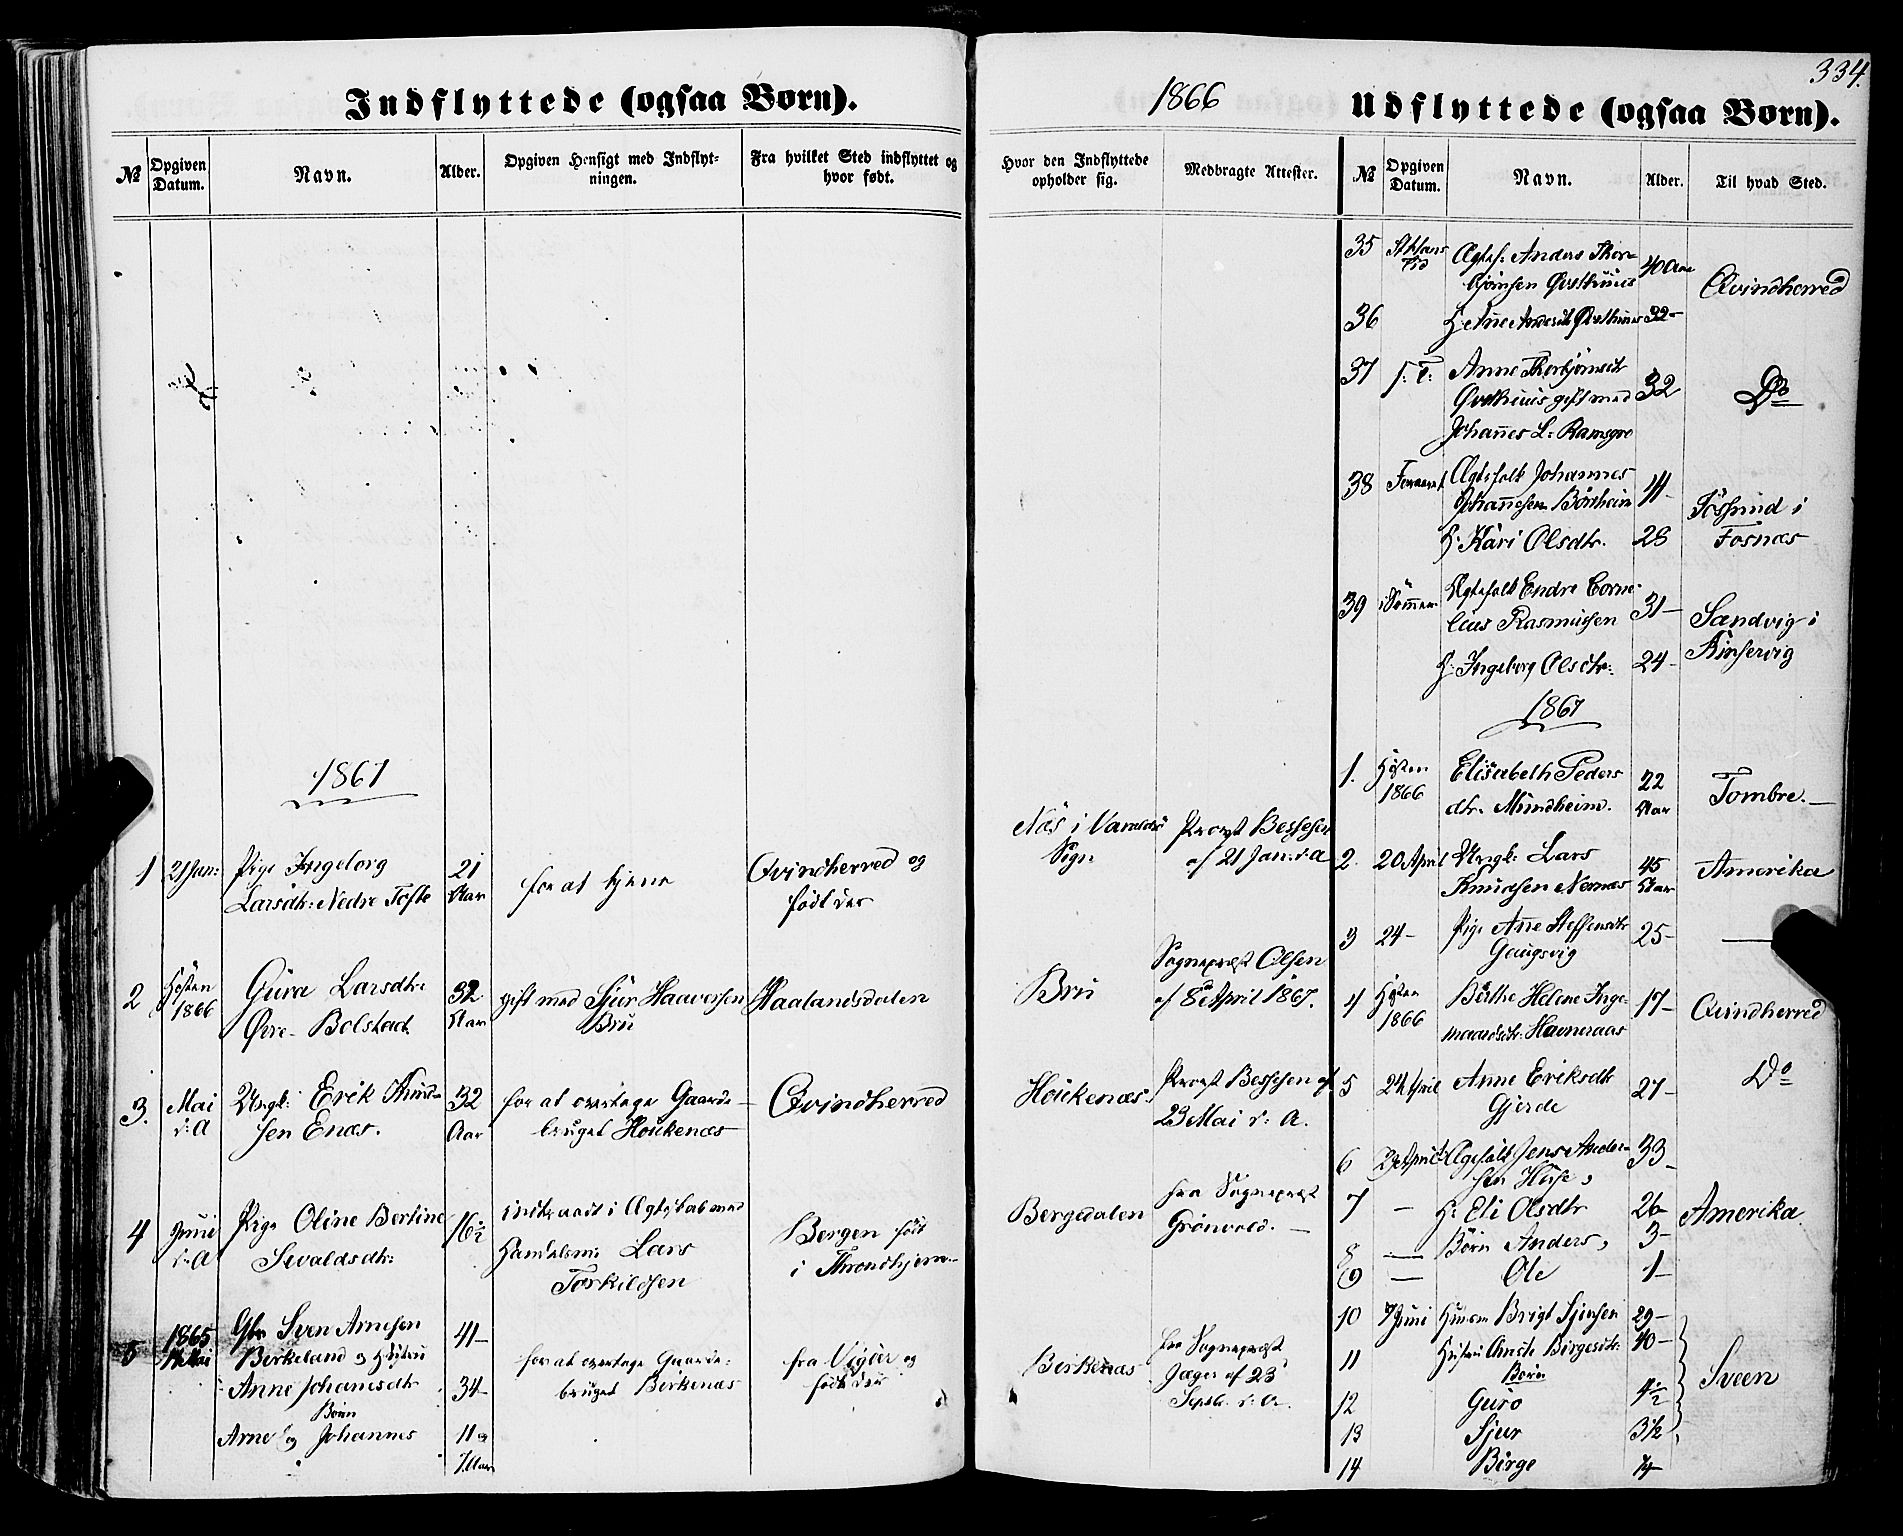 334.
Indflyttede (ogsaa Børn).
1866
Udflyttede (ogsaa Børn).
№
Opgiven Datum.
Navn.
Alder.
Opgiven Hensigt med Indflyt-
ningen.
Fra hvilket Sted indflyttet og
hvor født.
Hvor den Indflyttede
opholder sig.
Medbragte Attester.
№
Opgiven Datum.
Navn.
Alder.
Til hvad Sted.
1867
1 21 Jan: Pige Ingeborg 21 for at tjene Qvindherred og
Larsdtr: Nedre Tofte Aar født der
Næs i
Sogn
Provst Bessesen
af 21 Jan: d: A
2 Høsten Gura Larsdtr 32 gift med Sjur Haaversen Haalandsdalen
1866 Øvre Bolstad Aar Bru
Bru
Sognepræst Olsen
af 8de April 1867.
3. Mai Ungk: Erik Knud- 32 for at overtage Gaards- Qvindherred
d: A sen Enæs. Aar bruget Houkenæs
Houkenæs
Provst Bessesen af
23 Mai d: A.
4 Juni Pige Oline Bertine 16½ indtraadt i Ægteskab med Bergen født
d: A Sivaldsdtr: Handelsm: Lars i Throndhjem
Torkildsen
Bergsdalen
fra Sognepræst
Grönvold.
5 1865 Gbr Sven Arnesen 41
14 Mai Birkeland og Hustru for at overtage Gaards- fra Vigør og
Anne Johannesdtr 34 bruget Birkenæs født der
Børn
Arne og Johannes 11 og
7 Aar
Birkenæs
fra Sognepræst
Jæger af 23
Septb. d: A.
35 Ægtef: Anders Thor- 40 Aar
bjørnsen Østhuus Qvindherred
36 H: Ane Østhuus 32
37 Anne Thorbjørnsdtr 32 Do
Østhuus gift med
Johannes L:
38 Ægtefolk Johannes
Johannesen
H: Kari Olsdtr. 28
i
Fosnæs
39 i Sommer Ægtefolk Endre Corne- 31
lius Rasmussen Sandvig i
H: Ingeborg Olsdtr: 24 Kinservig
1867
1. Høsten Elisabeth Peders 22 Tombre.
1866 dtr. Mundheim. Aar
2. 20 April Ungk: Lars 45 Amerika
Knudsen Aar
3 24 Pige Ane Steffensdtr 25 —
Gaugsvig
4 Høsten Birthe Helene Inge- 17 Qvindherred
1866
5 24 April Anne Eriksdtr 27 Do
Gjerde
6 April Ægtefolk Jens Anders- 33
sen
7 — H: Eli Olsdtr 26 Amerika
8 — Børn Anders, 3
9 — Ole 1
10 7 Juni Husm Brigt Sjursen 29
11 Hustru Birgesdtr: 40
Børn
12 Guro 4½ Sveen
13 Sjur 3½
14 Birge